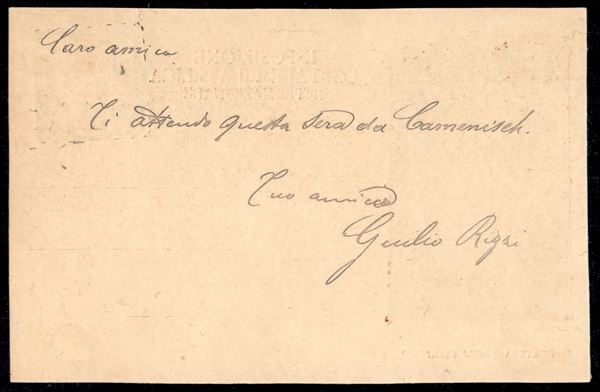 Caro amico
Ti attendo questa sera da Camenisch.
Tuo amico
Guilio Rizzi